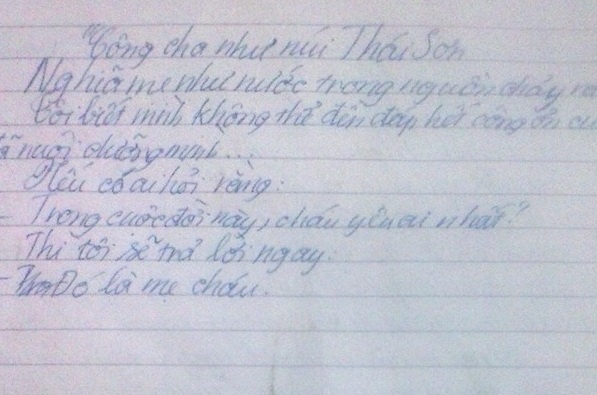 "Công cha như núi Thái Sơn
Nghĩa mẹ như nước trong nguồn chảy ra
Tôi biết mình không thể đền đáp hết công ơn
đã nuôi dưỡng mình...
Nếu có ai hỏi rằng:
- Trong cuộc đời này, cháu yêu ai nhất?
Thì tôi sẽ trả lời ngay:
- Đó là mẹ cháu.